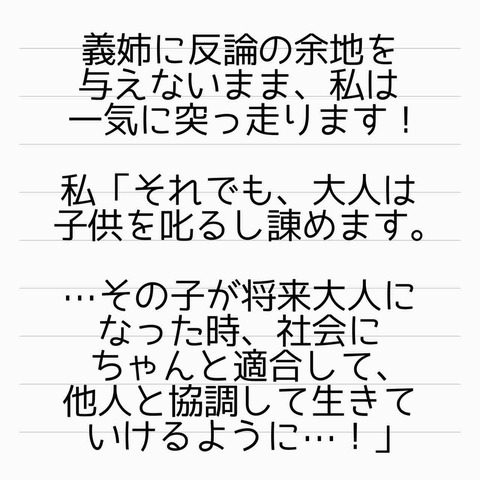 義姉に反論の余地を
与えないまま、私は
一気に突っ走ります！
私「それでも、大人は
子供を叱るし諌めます。
…その子が将来大人に
なった時、社会に
ちゃんと適合して、
他人と協調して生きて
いけるように…！」